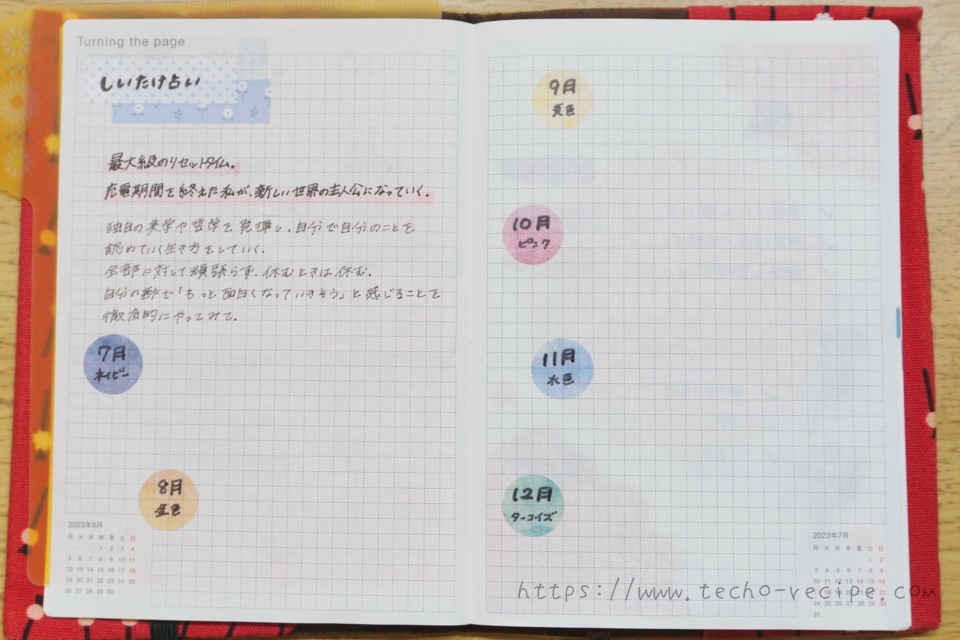 Turning the page
しいたけ占い
最大級のリセットタイム。
充電期間を終えた私が、新しい世界の主人公になっていく。
独自の美学や哲学を発揮し、自分で自分のことを
認めていく生き方をしていく。
全部に対して頑張らず、休むときは休む。
自分の勘で「もっと面白くなっていきそう」と感じることを
徹底的にやってみて。
7月
ネイビー
8月
金色
2023年6月
月 火 水 木 金 土 日
1 2 3 4
5 6 7 8 9 10 11
12 13 14 15 16 17 18
19 20 21 22 23 24 25
26 27 28 29 30
9月
黄色
10月
ピンク
11月
水色
12月
ターコイズ
2023年7月
月 火 水 木 金 土 日
1 2
3 4 5 6 7 8 9
10 11 12 13 14 15 16
17 18 19 20 21 22 23
24 25 26 27 28 29 30
31
https://www.techo-recipe.com